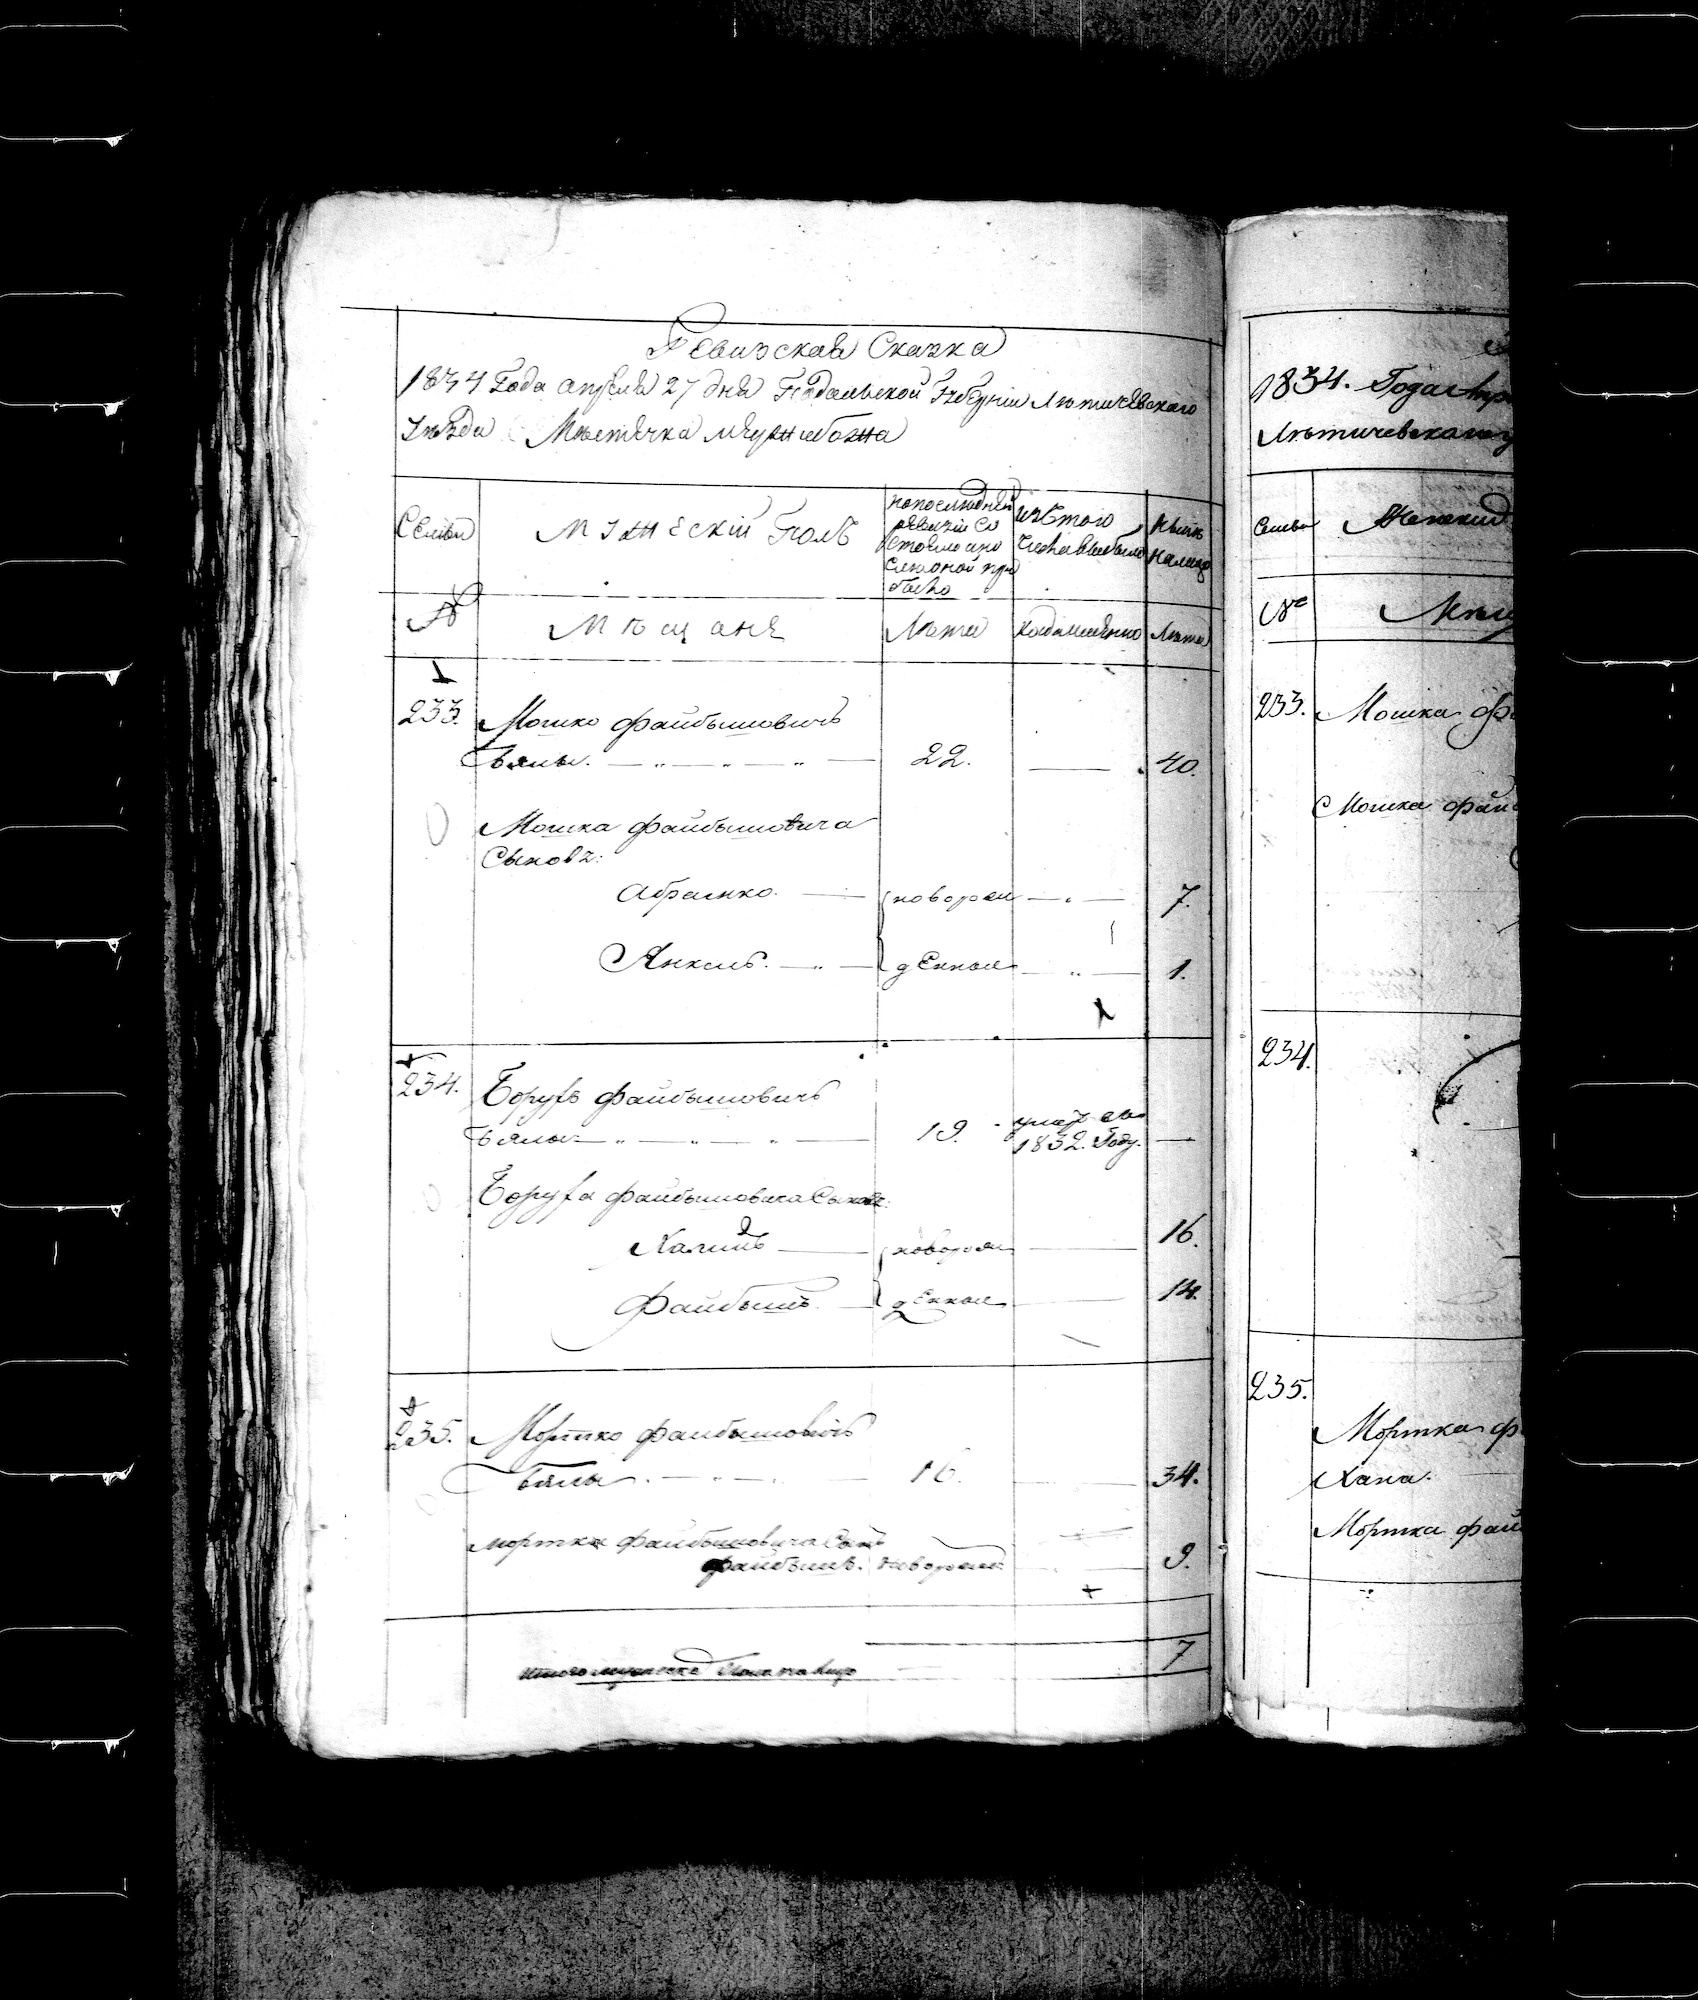 Ревизская Сказка
1834 Года апреля 27 дня Подольской Губернiи Летичевского
Уезда Местечка Меджибожа
Семьи
Мужескiй Полъ
По последней
ревизiи со
стояло и по
сле оной при
было
Изъ того
числа выбыло
Ныне
на лицо
№
Мещане
Лета
Когда именно
Лета
233.
Мошко Файбышовичъ
Бялы. 22. 40.
Мошка Файбышовича
Сыновъ:
Абрамко. новорож 7.
Янкель. денныя 1.
234.
Борухъ Файбышовичъ
Бялы 19. умер въ
1832. Году.
Боруха Файбышовича Сыновъ:
новорож 16.
Файбышъ. денныя 14.
235.
Мортко Файбышовичъ
Бялы. 16. 34.
Мортка Файбышовича Сынъ
Файбышъ. новорож. 9.
Итого мужеска Пола на лицо 7
1834. Года Апр
Летичевскаго у
Семьи
Женский
№
Мещ
233. Мошка Ф
Мошка Фай
234.
235.
Мортка Ф
Хана.
Мортка Фай